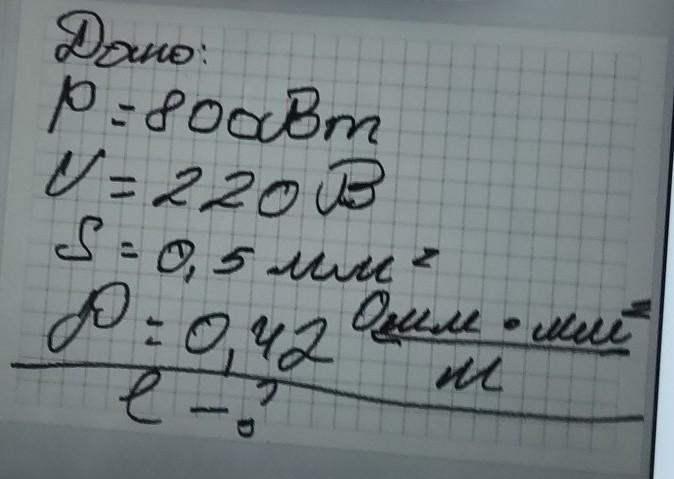 Дано:
P = 800Вт
U = 220 В
S = 0,5 мм²
ρ = 0,42 Омм · мм² / м
l - ?